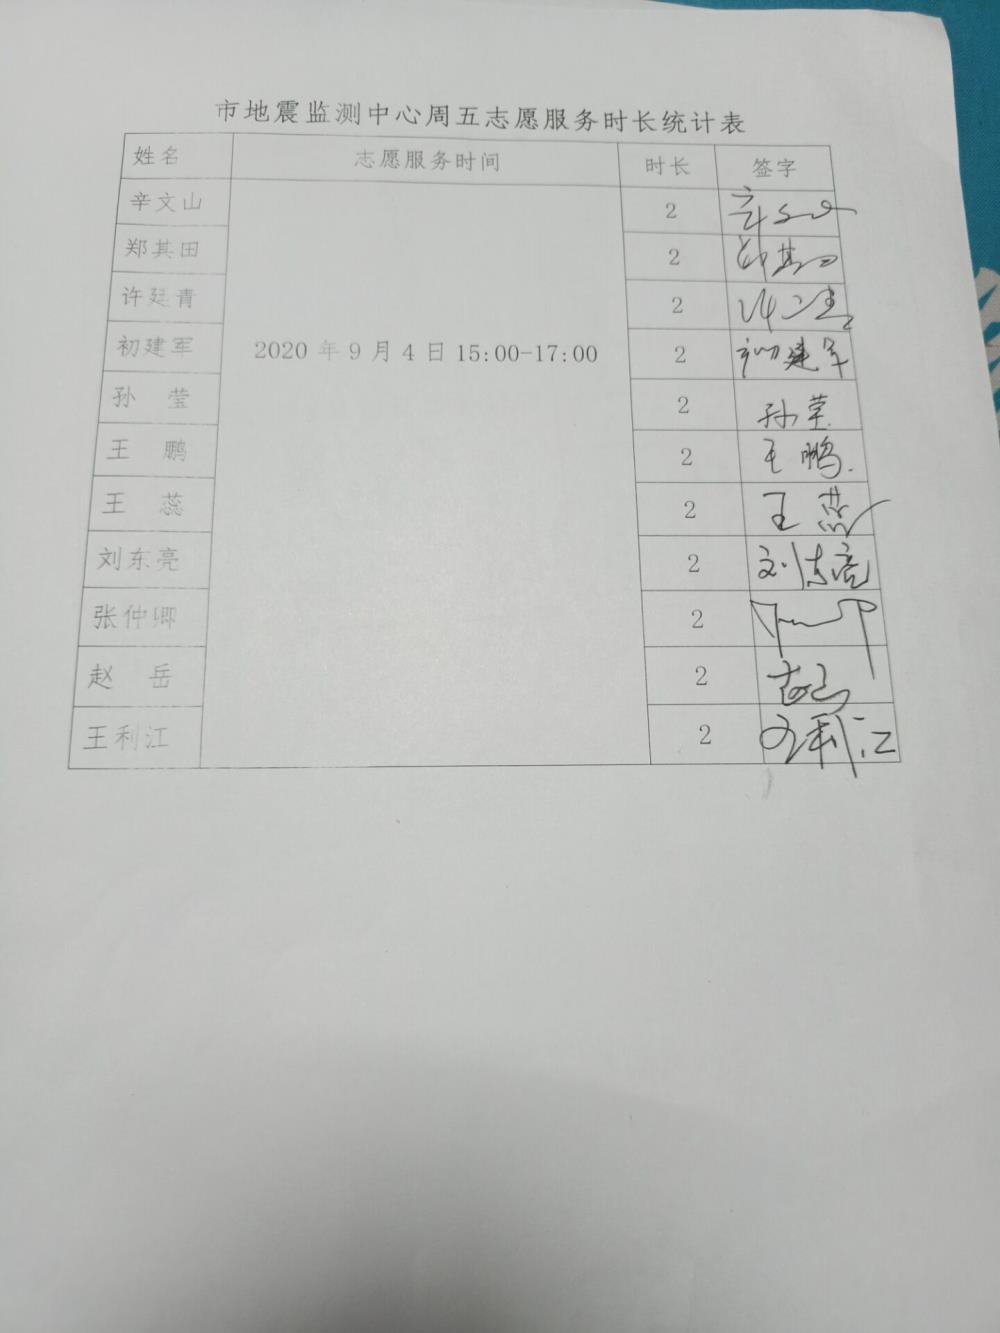 市地震监测中心周五志愿服务时长统计表
姓名 志愿服务时间 时长 签字
辛文山 2
郑其田 2 郑其田
许廷青 2
初建军 2020年9月4日15:00-17:00 2 初建军
孙 莹 2 孙莹
王 鹏 2 王鹏
王 蕊 2 王蕊
刘东亮 2 刘东亮
张仲卿 2
赵 岳 2
王利江 2 王利江